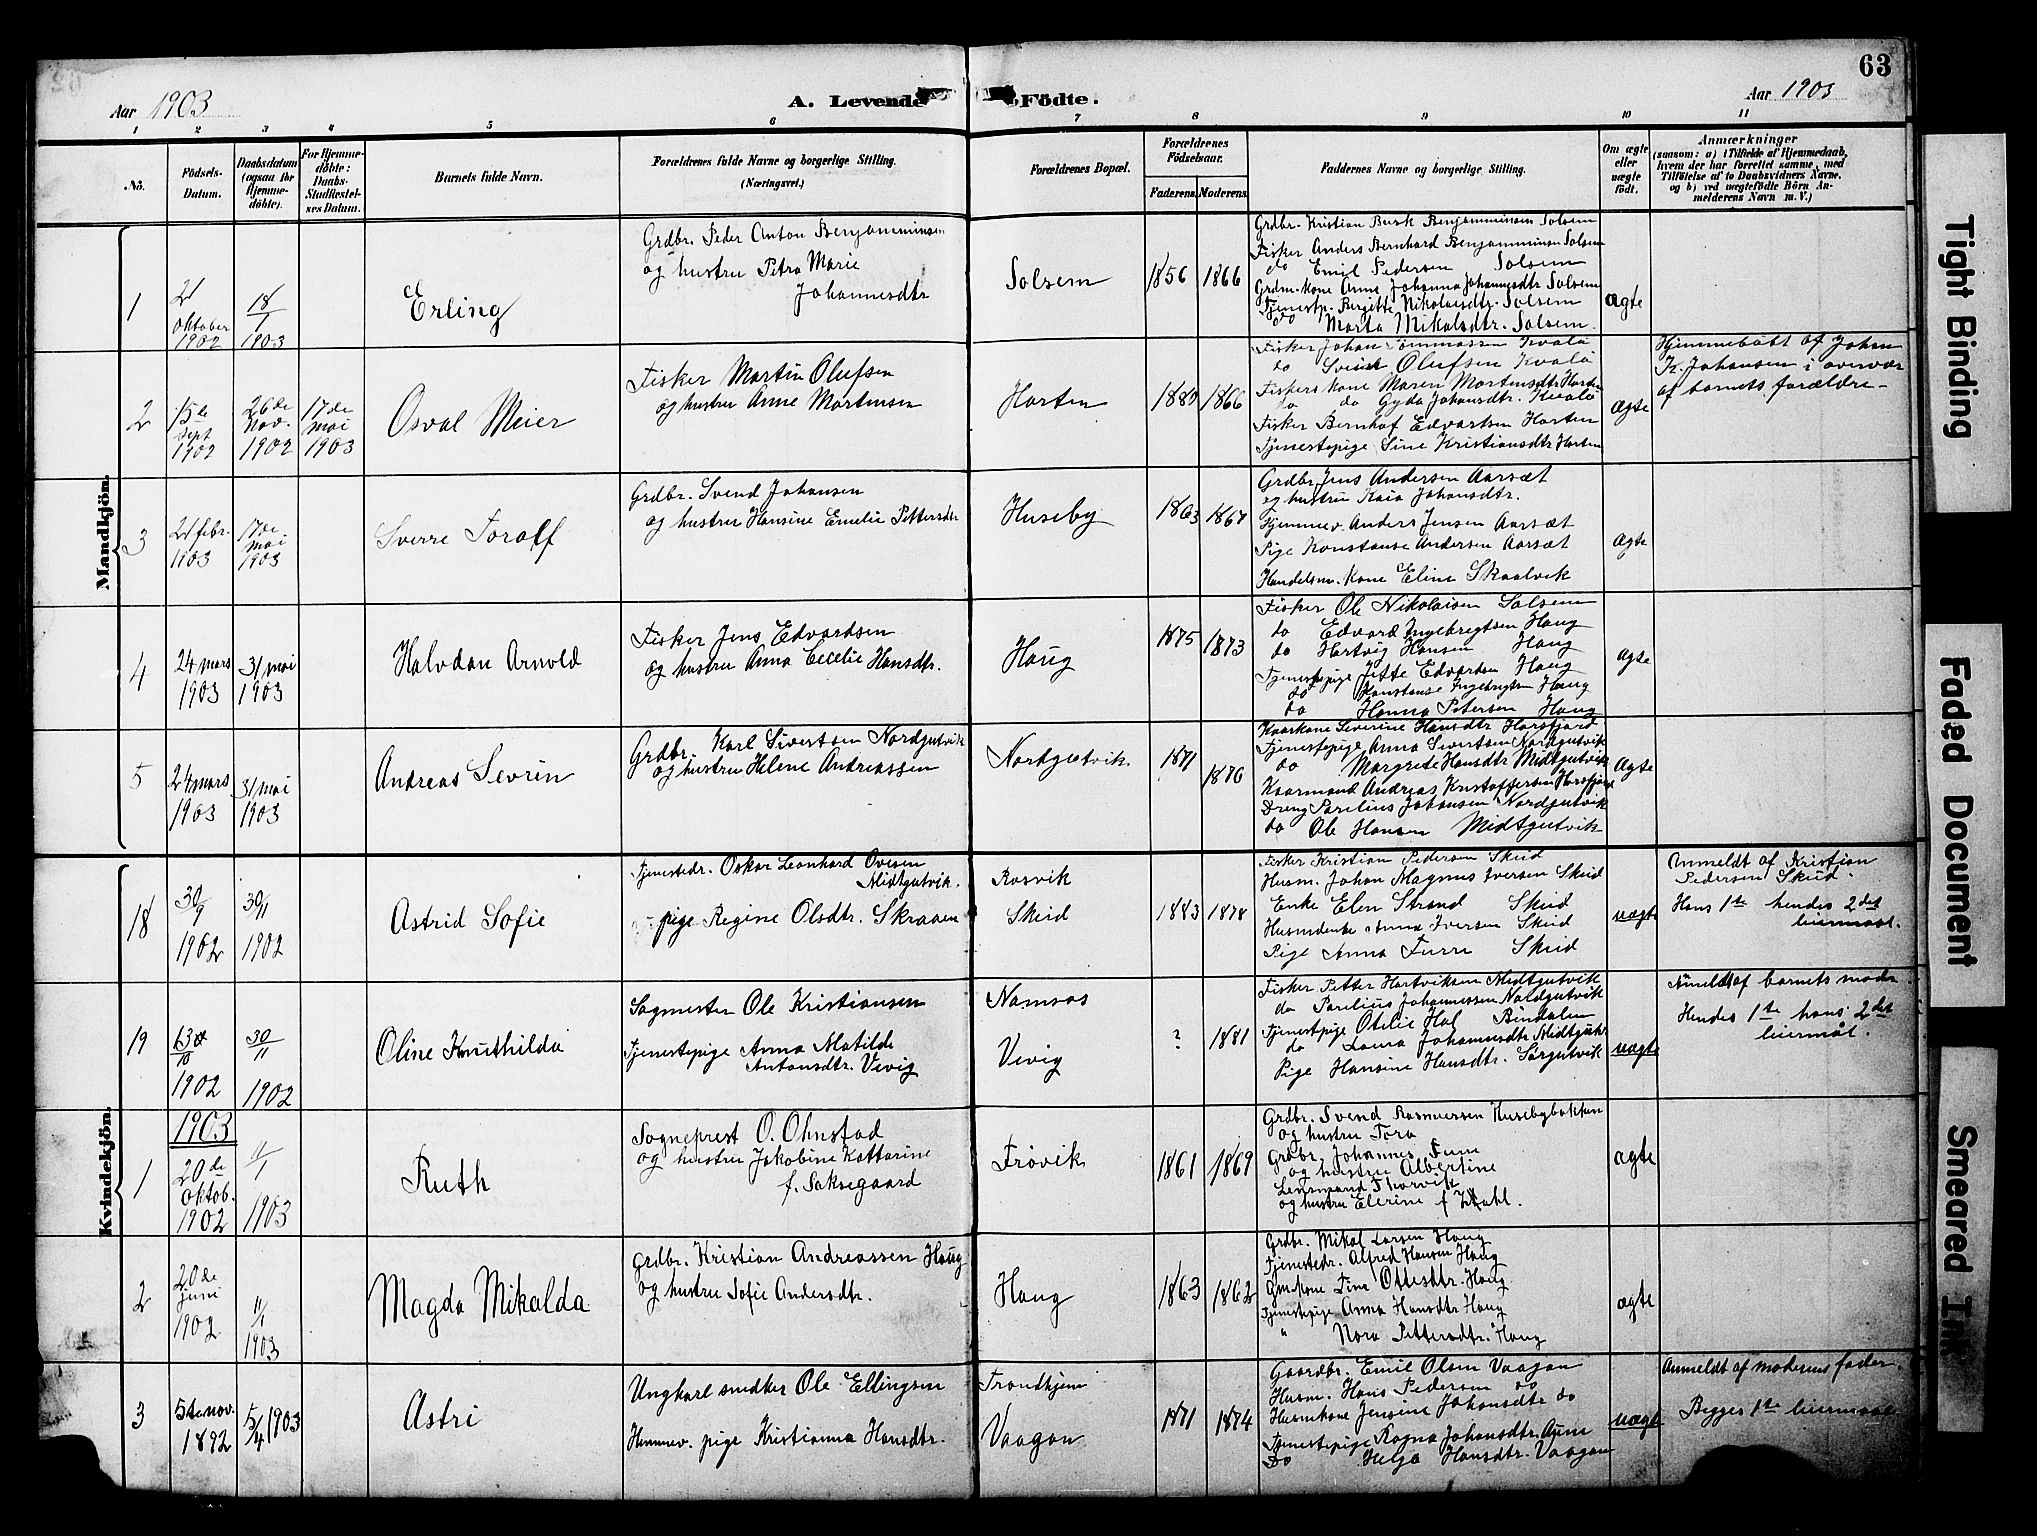 63
Aar 1903
A. Levende Födte.
Aar 1903
1 2 3 4 5 6 7 8 9 10 11
No.
Födsels-
Datum.
Daabsdatum
(ogsaa for
Hjemme-
döbte).
For Hjemme-
döbte:
Daabs-
Stadfæstel-
ses Datum.
Barnets fulde Navn.
Forældrenes fulde Navne og borgerlige Stilling.
(Næringsvei.)
Forældrenes Bopæl.
Forældrenes
Födselsaar.
Faderens. Moderens.
Faddernes Navne og borgerlige Stilling.
Om ægte
eller
uægte
födt.
Anmærkninger
(saasom: a) i Tilfælde af Hjemmedaab,
hvem der har forrettet samme, med
Tilföielse af to Daabsvidners Navne.
og b) ved uægtefödte Börn An-
melderens Navn m. V.)
Mandkjön.
1
21
oktober
1902
18/1
1903
Erling
Grdbr. Peder Anton Benjaminsen
og hustru Petra Marie
Johannesdtr
Solsem
1856 1866
Grdbr. Kristian Busk Benjaminsen Solsem
Fisker Anders Bernhard Benjaminsen Solsem
do Emil Pedersen Solsem
Grdm. kone Anne Johanna Johannesdtr Solsem
Tjenestp. Bergitte Nikolaisdtr. Solsem
do Marta Mikalsdtr. Solsem
ægte
2
15de
sept
1902
26de
Nov.
1902
17de
mai
1903
Osval Meier
Fisker Martin Olufsen
og hustru Anne Mortensen
Horten
1880 1866
Fisker Johan Tommassen Kvalö
do Svend Olufsen Kvalö
Fiskers kone Maren Mortensdtr Horten
do do Gyda Johansdtr. Kvalö
Fisker Bernhof Edvartsen Horten
Tjenestepige Sine Kristiansdtr Horten
ægte
Hjemmedöbt af Johan
K. Johansen i overvær
af barnets forældre
3
21 febr.
1903
17de
mai
1903
Sverre Toralf
Grdbr. Svend Johansen
og hustru Hansine Emelie Pettersdtr
Huseby
1863 1867
Grdbr Jens Andersen Aarsæt
og hustru Kaia Johansdtr.
Hjemmev. Anders Jensen Aarsæt
Pige Konstanse Andersen Aarsæt
Handelsm. kone Eline Skaalvik
ægte
4
24 mars
1903
31 mai
1903
Halvdan Arnold
Fisker Jens Edvardsen
og hustru Anna Cecelie Hansdtr.
Haug
1875 1873
Fisker Ole Nikolaisen Solsem
do Edvard Ingebregtsen Haug
do Hartvig Hansen Haug
Tjenestepige Jette Edvardsen Haug
do Konstanse Ingebrigtsen Haug
do Hanna Petersen Haug
ægte
5
24 mars
1903
31 mai
1903
Andreas Sevrin
Grdbr. Karl Sivertsen Nordgutvik
og hustru Helene Andreassen
Nordgutvik
1871 1870
Kaarkone Severine Hansdtr Horsfjord
Tjenestepige Anna Sivertsen Nordgutvik
do Margrete Hansdtr Midtgutvik
Kaarmand Andreas Kristoffersen Horsfjord
Dreng Parelius Johansen Nordgutvik
do Ole Hansen Midtgutvik
ægte
Kvindekjön.
18
30/9
1902
30/11
1902
Astrid Sofie
Tjenestedr. Oskar Leonhard Ovesen
Midtgutvik.
pige Regine Olsdtr. Skraaen
Rosvik
Skeid
1883 1878
Fisker Kristian Pedersen Skeid
Husm. Johan Magnus Iversen Skeid
Enke Elen Strand Skeid
Husmdenke Anna Iversen Skeid
Pige Anna Furre Skeid
uægte
Anmeldt af Kristian
Pedersen Skeid.
Hans 1te hendes 2det
leiermaal.
19
13/10
1902
30/11
1902
Oline Knuthilda
Sagmester Ole Kristiansen
Tjenestepige Anna Matilde
Antonsdtr. Vevig
Namsos
Vevig
? 1881
Fisker Petter Hartviksen Midtgutvik
do Parelius Johannessen Nordgutvik
Tjenestpige Otelie Hal Bindalen
do Laura Johannesdtr Midtgutv.
Pige Hansine Hansdtr. Sörgutvik
uægte
Anmeldt af barnets moder.
Hendes 1te hans 2det
leiermål.
1903
1
20de
oktob.
1902
11/1
1903
Ruth
Sogneprest O. Ohnstad
og hustru Jakobine Kattarine
f. Saksegaard
Frövik
1861 1869
Grdbr. Svend Rasmussen Husebybakken
og hustru Tora
Grdbr. Johannes Fure
og hustru Albertine
Lensmand Thorvik
og hustru Elerine f Dahl.
ægte
2
20de
juni
1902
11/1
1903
Magda Mikalda
Grdbr. Kristian Andreassen Haug
og hustru Sofie Andersdtr.
Haug
1863 1862
Grdbr. Mikal Larsen Haug
Tjenestedr. Alfred Hansen Haug
Gmdkone Tina Ottesdtr. Haug
Tjenestepige Anna Hansdtr Haug
" Nora Pettersdtr. Haug
ægte
3
5te nov.
1892
5/4 1903
Astri
Ungkarl snedker Ole Ellingsen
Hemmev. pige Kristianna Hansdtr.
Trondhjem
Vaagan
1871 1874
Gaardbr. Emil Olsen Vaagan
Husm. Hans Pedersen do
Husmkone Jensine Johansdtr do
Tjenestepige Ragna Johansdtr. Aune
Do Helga Hansdtr. Vaagan
uægte
Anmeldt af moderens fader.
Begges 1te leiermaal
Tight Binding
Faded Document
Smeared Ink